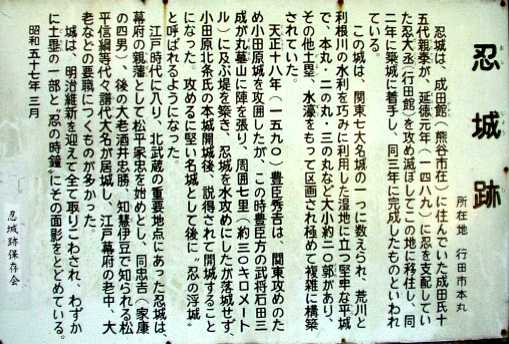 忍城跡
所在地 行田市本丸
忍城は、成田館（熊谷市在）に住んでいた成田氏十
五代親泰が、延徳元年（一四八九）に忍を支配してい
た忍大丞（行田館）を攻め滅ぼしてこの地に移住し、同
二年に築城に着手し、同三年に完成したものといわれ
ている。
この城は、関東七大名城の一つに数えられ、荒川と
利根川の水利を巧みに利用した湿地に立つ堅牢な平城
で、本丸・二の丸・三の丸など大小約二〇郭があり、
その他土塁、水濠をもって区画され極めて複雑に構築
されていた。
天正十八年（一五九〇）豊臣秀吉は、関東攻めのた
め小田原城を攻囲したが、この時豊臣方の武将石田三
成が丸墓山に陣を張り、周囲七里（約三〇キロメート
ル）に及ぶ堤を築き、忍城を水攻めにしたが落城せず、
小田原北条氏の本城開城後、説得されて開城すること
になった。攻めるに堅い名城として後に〝忍の浮城〟
と呼ばれるようになった。
江戸時代に入り、北武蔵の重要地点にあった忍城は、
幕府の親藩として松平家忠を始めとし、同忠吉（家康
の四男）、後の大老酒井忠勝、知慧伊豆で知られる松
平信綱等代々譜代大名が居城し、江戸幕府の老中、大
老などの要職につくものが多かった。
城は、明治維新を迎えて全て取りこわされ、わずか
に土塁の一部と〝忍の時鐘〟にその面影をとどめている。
昭和五十七年三月
忍城跡保存会